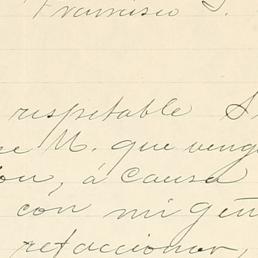 Francisco I.
respetable S
ue U. que veng
on, á causa
con mi gen
refaccionar,